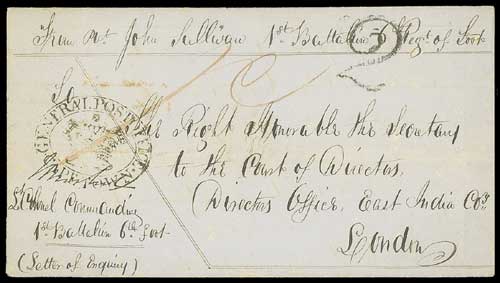 From Pvt John Sullivan 1st Battalion 6 Regt of Foot
To
GENERAL POST
The Right Honorable the Secretary
to the Court of Directors,
Directors Office, East India Coys
London
Lt Colonel Commandine
1st Battalion 6th Foot
(Letter of Enquiry)